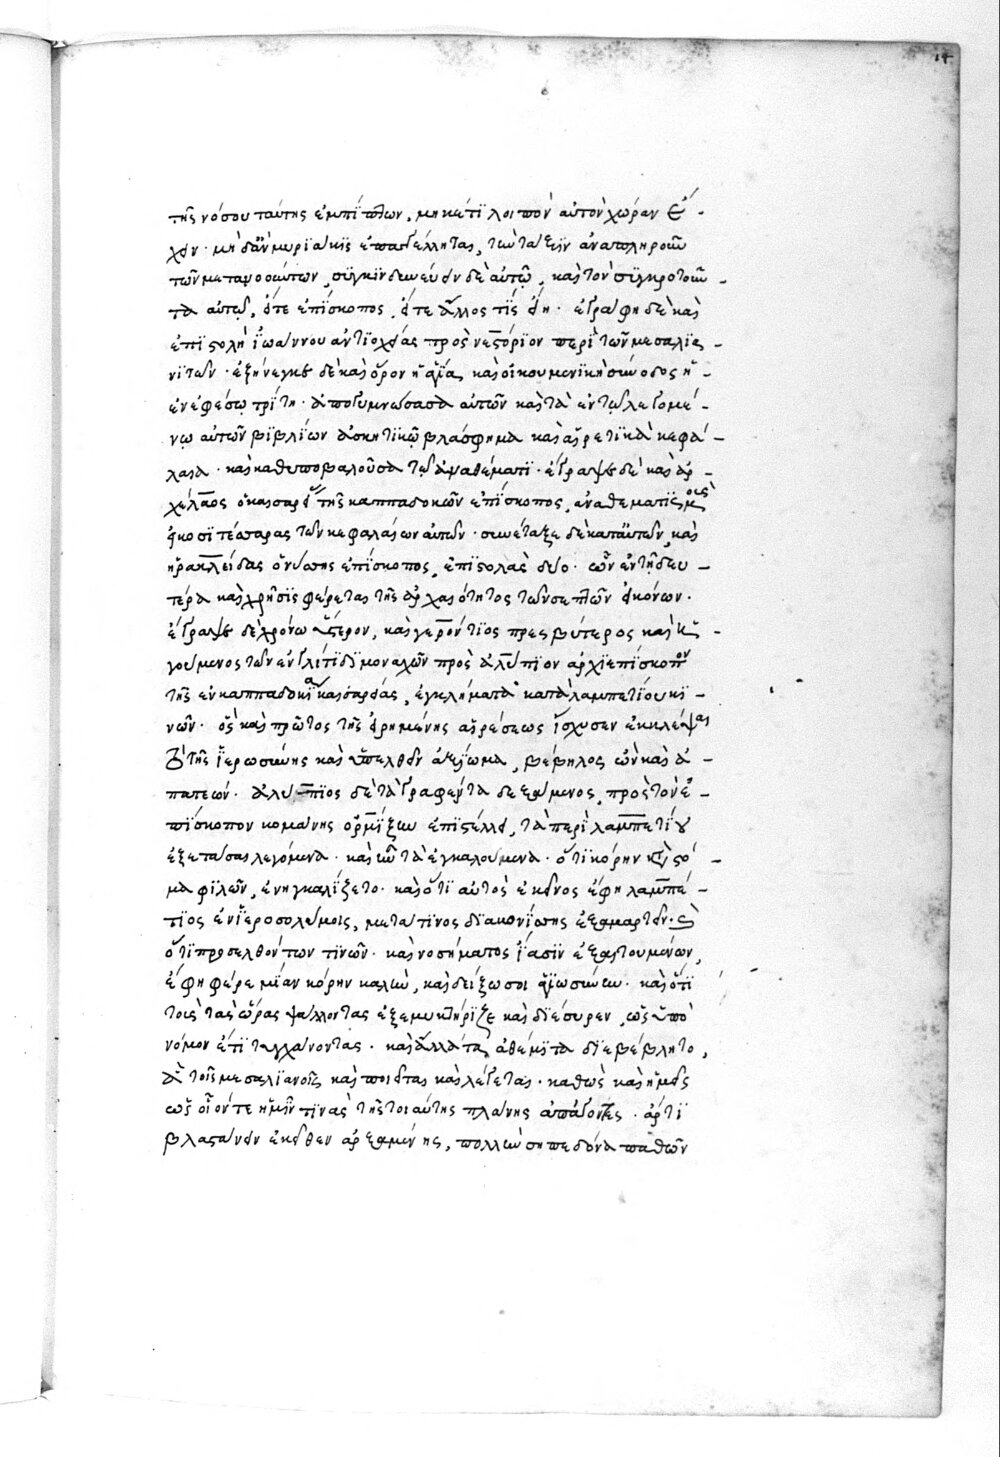 14
τῆς νόσου ταύτης ἐμπίπτων, μηκέτι λοιπὸν αὐτὸν χώραν ἔ-
χειν· μὴ δἂν μυριάκις ἐπαγγέλληται, τὴν τάξιν ἀναπληροῦν
τῶν μεταγνόντων, συγκινδυνεύειν δὲ αὐτῷ, καὶ τὸν συγκροτοῦν-
τα αὐτῷ, εἴτε ἐπίσκοπος, εἴτε ἄλλος τίς εἴη· ἐγράφη δὲ καὶ
ἐπιστολὴ ἰωάννου ἀντιοχείας πρὸς νεστόριον περὶ τῶν μεσαλια-
νιτῶν· ἐξήνεγκε δὲ καὶ ὅρον ἡ ἁγία καὶ οἰκουμενικὴ σύνοδος ἡ
ἐν ἐφέσῳ τρίτη· ἀπογυμνώσασα αὐτῶν καὶ τὰ ἐν τῷ λεγομέ-
νῳ αὐτῶν βιβλίων ἀσκητικῷ βλάσφημα καὶ αἱρετικὰ κεφά-
λαια· καὶ καθυποβαλοῦσα τῷ ἀναθέματι· ἔγραψε δὲ καὶ ἀρ-
χέλαος ὁ καισαρείας τῆς καππαδοκῶν ἐπίσκοπος, ἀναθεματισμοὺς
εἰκοσιτέσσαρας τῶν κεφαλαίων αὐτῶν· συνέταξε δὲ κατ' αὐτῶν, καὶ
ἡρακλείδας ὁ νύσσης ἐπίσκοπος, ἐπιστολὰς δύο· ὧν ἐν τῇ δευ-
τέρᾳ καὶ χρῆσις φέρεται τῆς ἀρχαιότητος τῶν σεπτῶν εἰκόνων·
ἔγραψε δὲ χρόνω ὕστερον, καὶ γερόντιος πρεσβύτερος καὶ ἡ-
γούμενος τῶν ἐν γλίτιδι μοναχῶν πρὸς ἀλύπιον ἀρχιεπίσκοπον
τῆς ἐν καππαδοκία καισαρείας, ἐγκλήματα κατὰ λαμπετίου κι-
νῶν· ὃς καὶ πρῶτος τῆς εἰρημένης αἱρέσεως ἴσχυσεν ἐκκλέψας
τὸ τῆς ἱερωσύνης καὶ ὑπελθεῖν ἀξίωμα, βέβηλος ὢν καὶ ἀ-
πατεών· ἀλύπιος δὲ τὰ γραφέντα δεξάμενος, πρὸς τὸν ἐ-
πίσκοπον κομάνης ὁρμίζην ἐπιστέλλει, τὰ περὶ λαμπετίου
ἐξετάσαι λεγόμενα· καὶ ἦν τὰ ἐγκαλούμενα· ὅτι κόρην κατὰ στό-
μα φιλῶν, ἐνηγκαλίζετο· καὶ ὅτι αὐτὸς ἐκεῖνος ἔφη λαμπέ-
τιος ἐν ἱεροσολύμοις, μετά τινος διακονίσσης ἐξαμαρτεῖν· καὶ
ὅτι προσελθόντων τινῶν· καὶ νοσήματος ἴασιν ἐξαιτουμένων,
ἔφη φέρε μίαν κόρην καλὴν, καὶ δείξω σοι ἁγιωσύνην· καὶ ὅτι
τοὺς τὰς ὥρας ψάλλοντας ἐξεμυκτήριζε καὶ διέσυρεν, ὡς ὑπὸ
νόμον ἔτι τυγχάνοντας· καὶ ἄλλά τα ἀθέμιτα διεβέβλητο,
ἃ τοῖς μεσαλιανοῖς καὶ ποιεῖται καὶ λέγεται· καθὼς καὶ ἡμεῖς
ὡς οἷόν τε ἡμῖν τινὰς τῆς τοιαύτης πλάνης ἀπάγοντες· ἄρτι
βλαστάνειν ἐκεῖθεν ἀρξαμένης, πολλὴν σηπεδόνα παθῶν